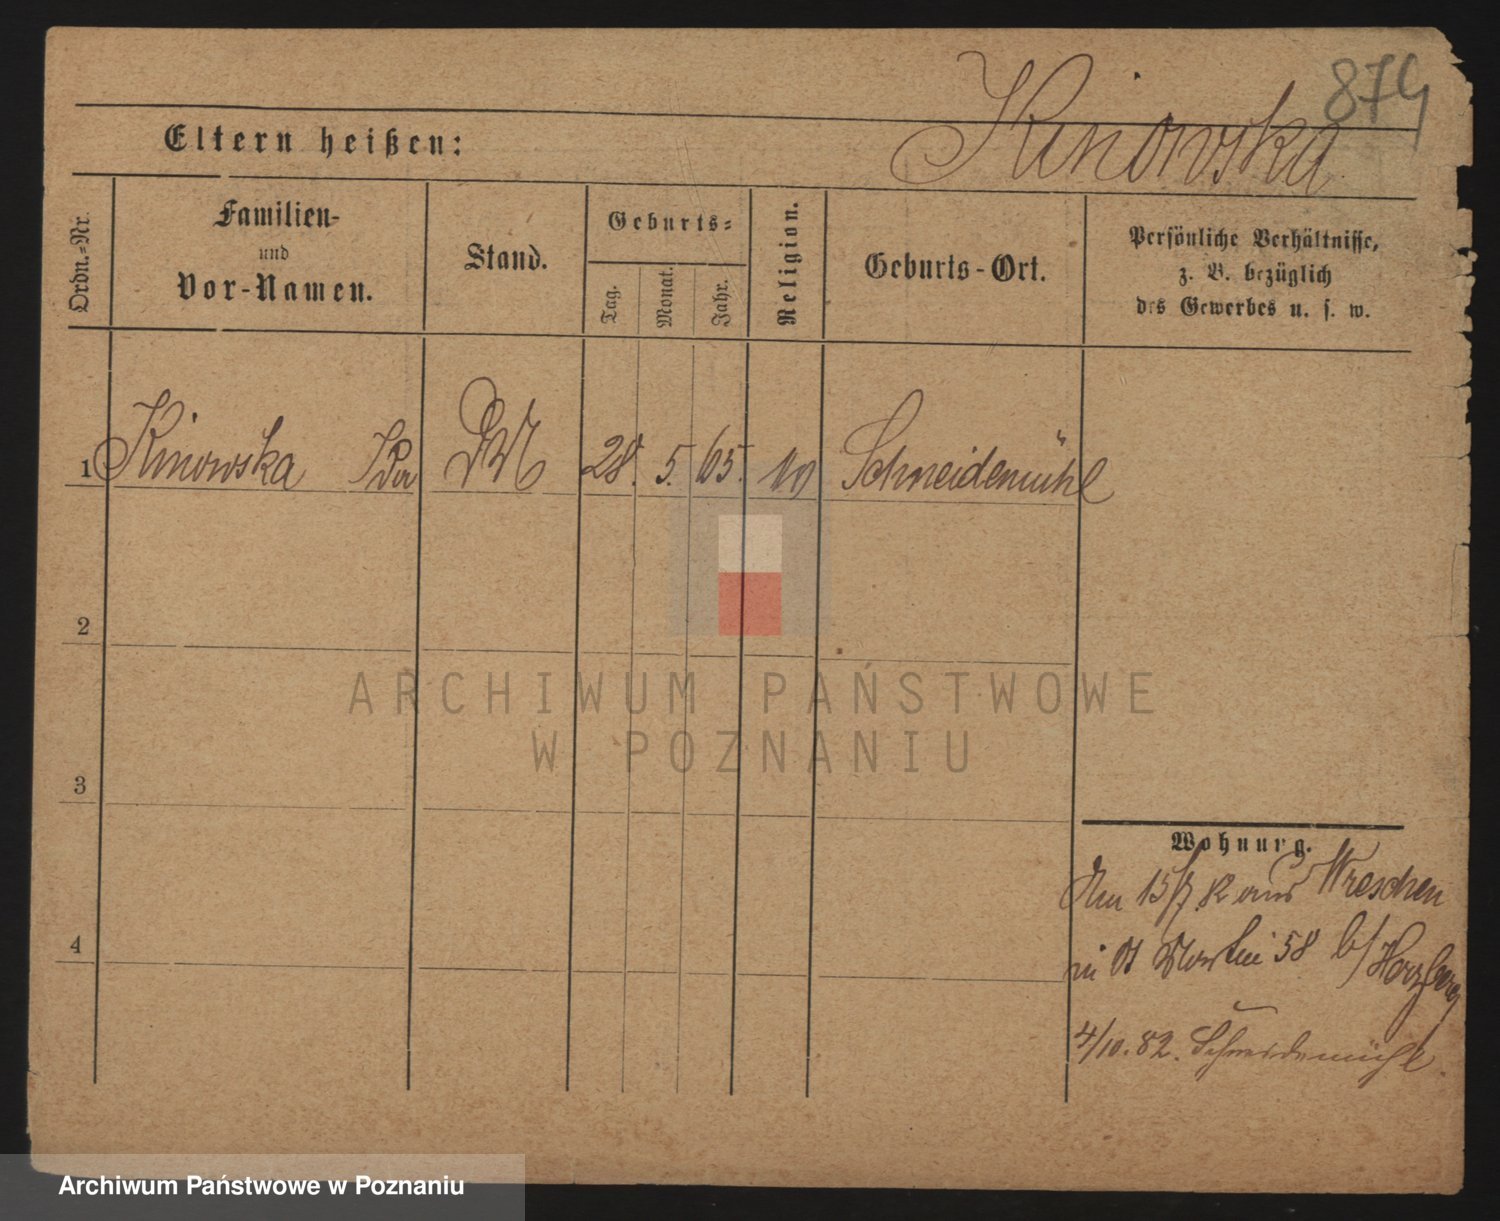 874
Kinowska
Eltern heißen:
Ordn.-Nr.
Familien-
und
Vor-Namen.
Stand.
Geburts-
Tag.
Monat.
Jahr.
Religion.
Geburts-Ort.
Persönliche Verhältnisse,
z. B. bezüglich
des Gewerbes u. s. w.
1 Kinowska Ida 28. 5. 65. Schneidemühl
2
ARCHIWUM PAŃSTWOWE
W POZNANIU
3
Wohnung.
Am 15/7 82 aus Wreschen
in St Martin 58 b/ Herzberg
4
4/10. 82. Schneidemühl.
Archiwum Państwowe w Poznaniu